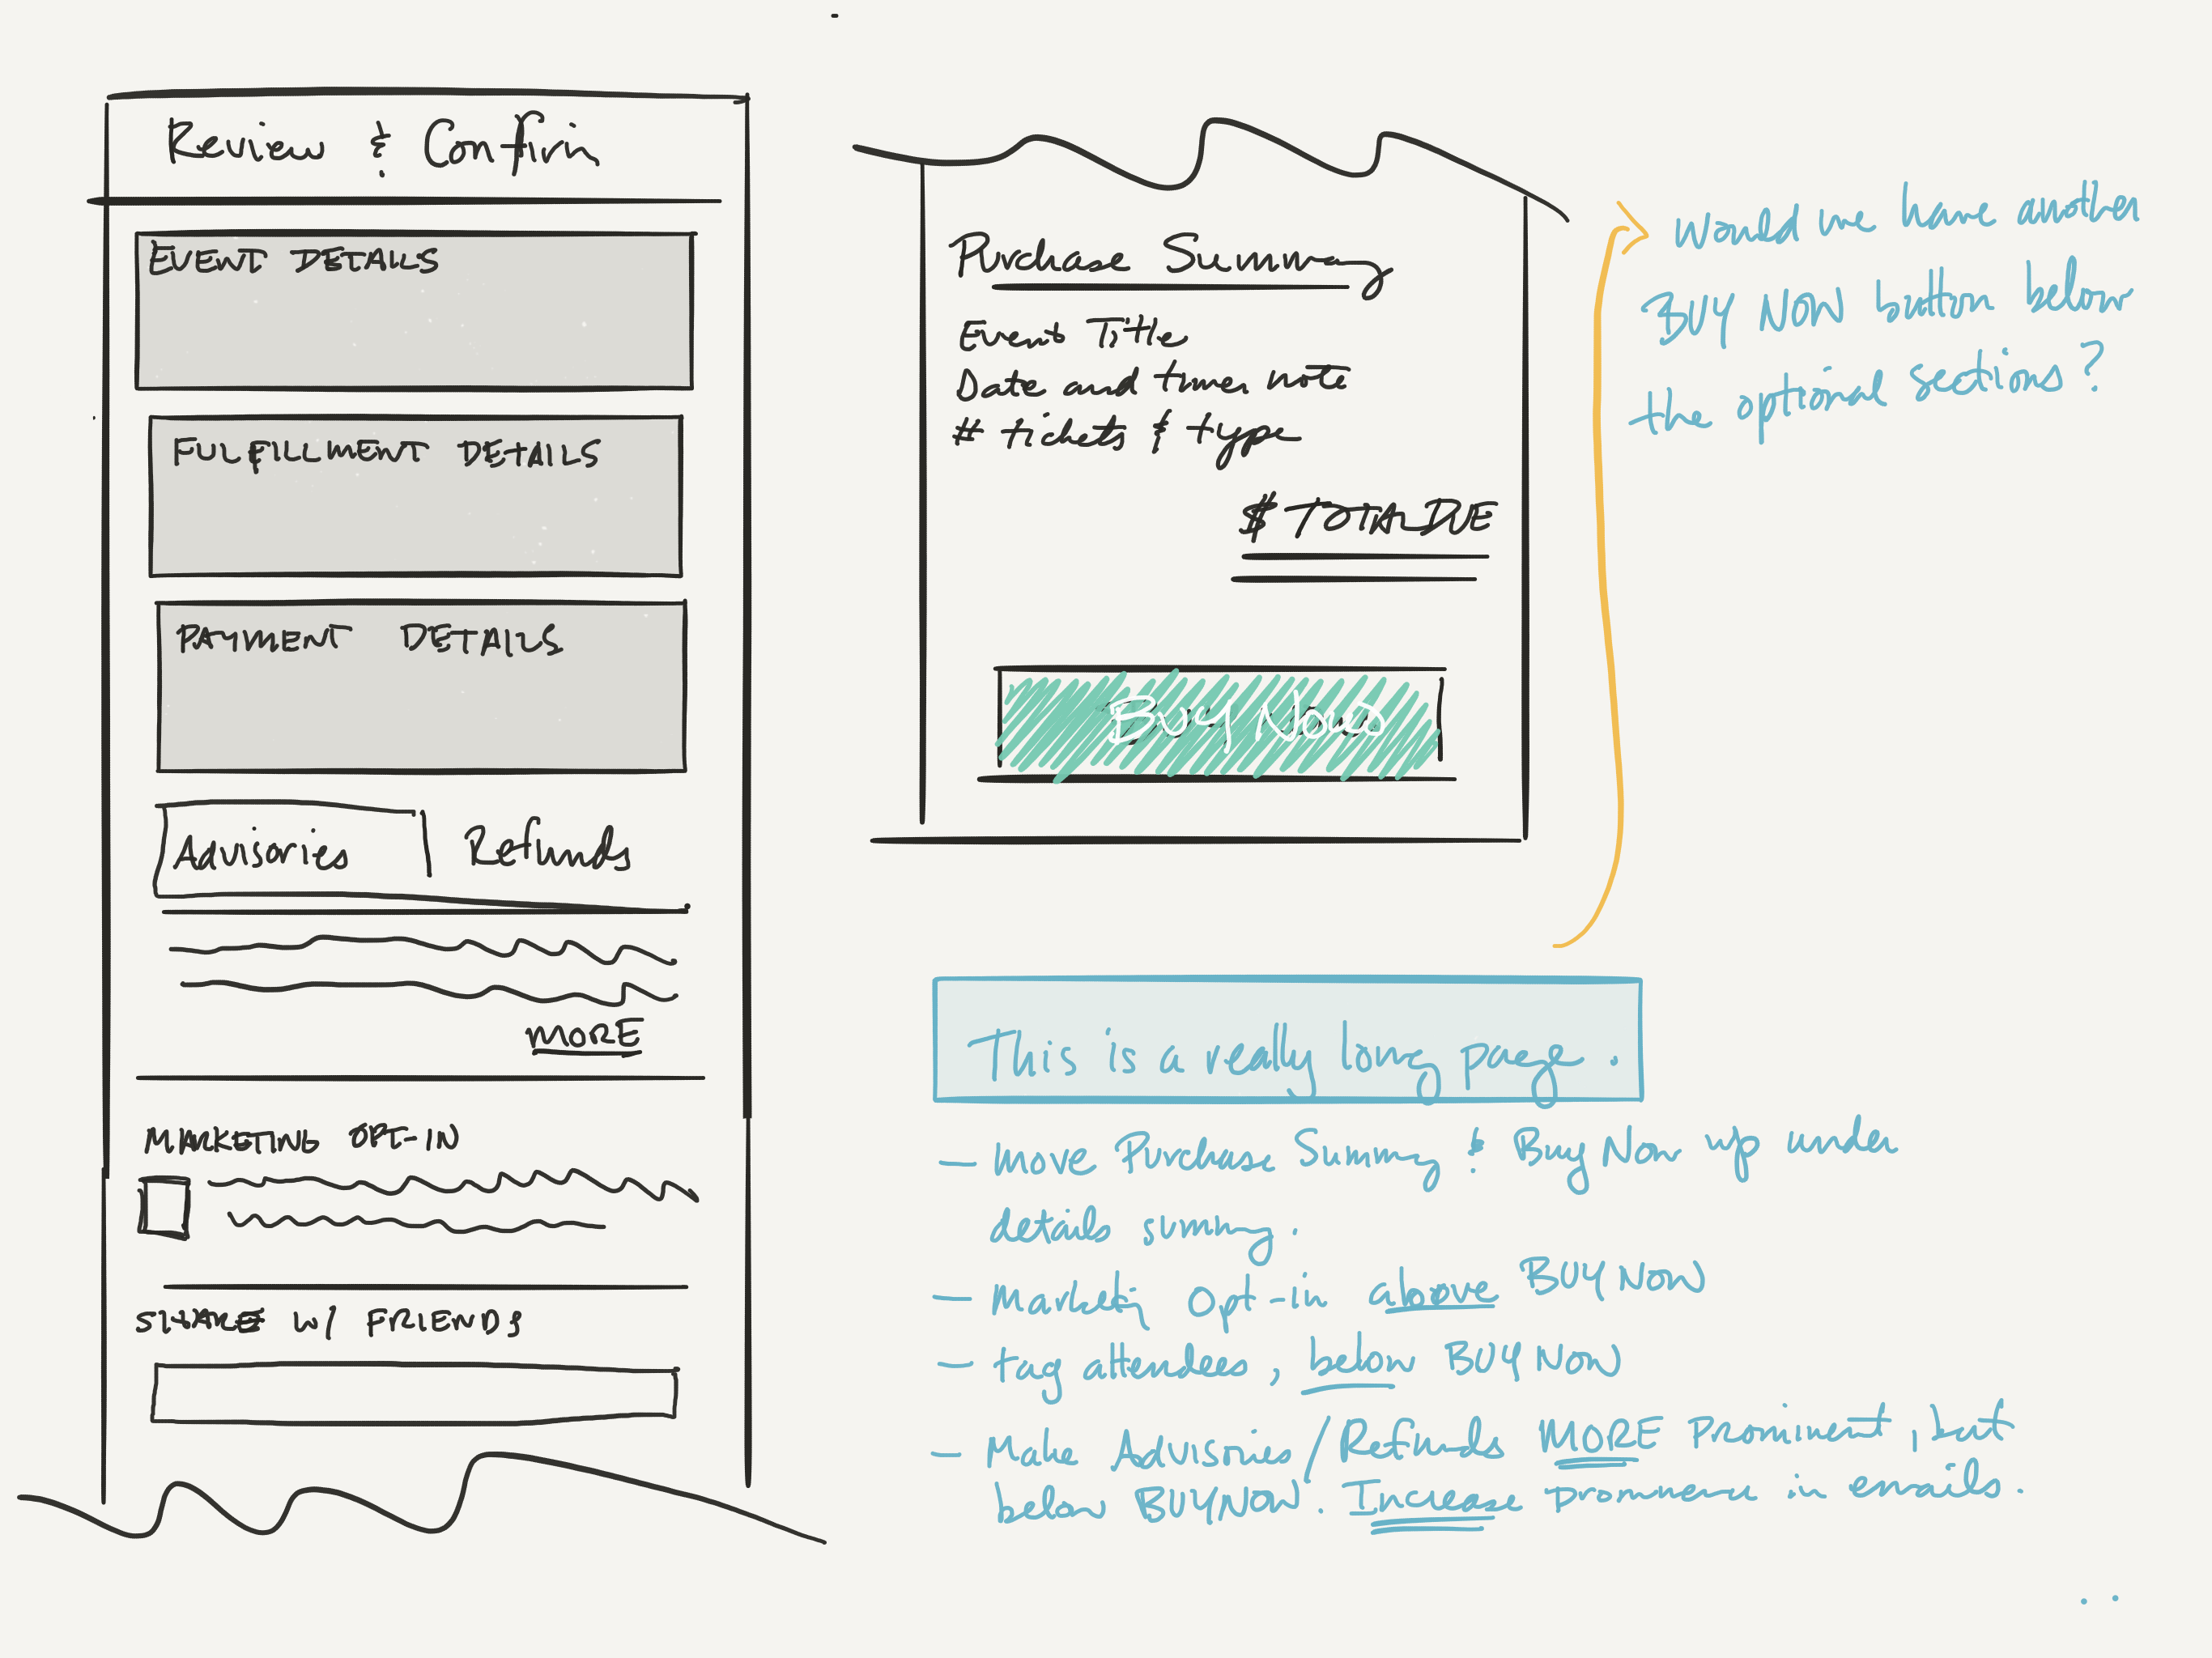 Review & Confirm
EVENT DETAILS
FULFILLMENT DETAILS
PAYMENT DETAILS
Advisories
Refunds
MORE
MARKETING OPT-IN
SHARE W/ FRIENDS
Purchase Summary
Event Title
Date and time note
# tickets & type
$ TOTAL DUE
BUY NOW
Would we have another
BUY NOW button below
the optional sections?
This is a really long page.
- Move Purchase Summary & Buy Now up under
details summary.
- Marketing opt-in above BUY NOW
- tag attendees, below BUY NOW
- Make Advisories/Refunds MORE Prominent, but
below BUY NOW. Increase prominence in emails.